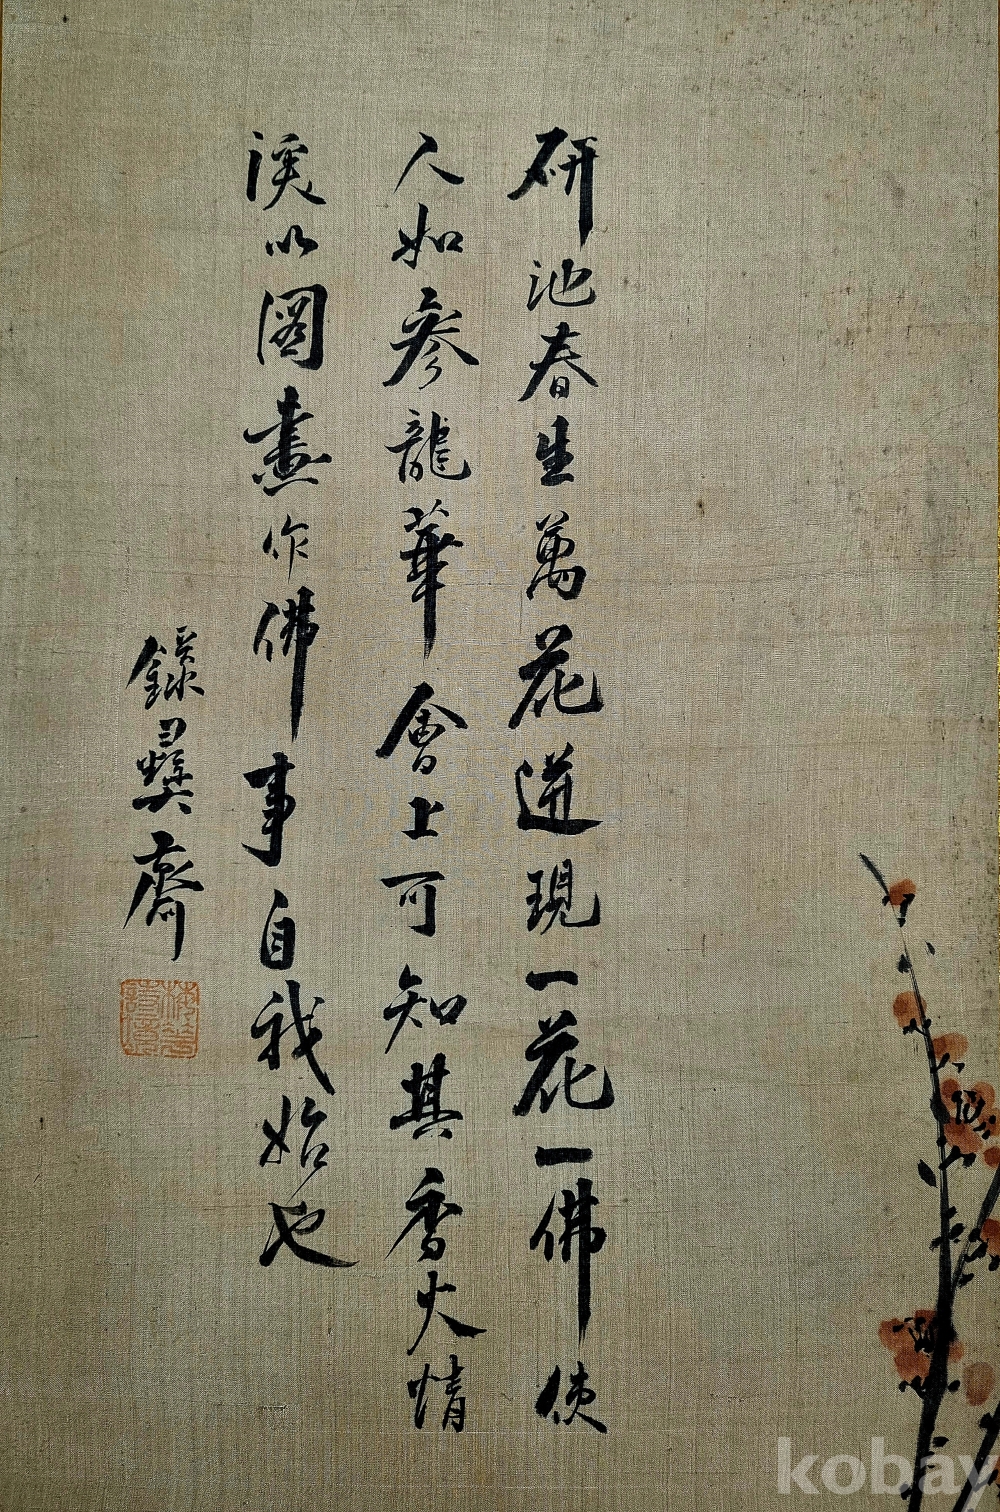 研池春生萬花迸現一花一佛使
人如參龍華會上可知其香火情
深以圖畵作佛事自我始也
錄彛齋
kobay